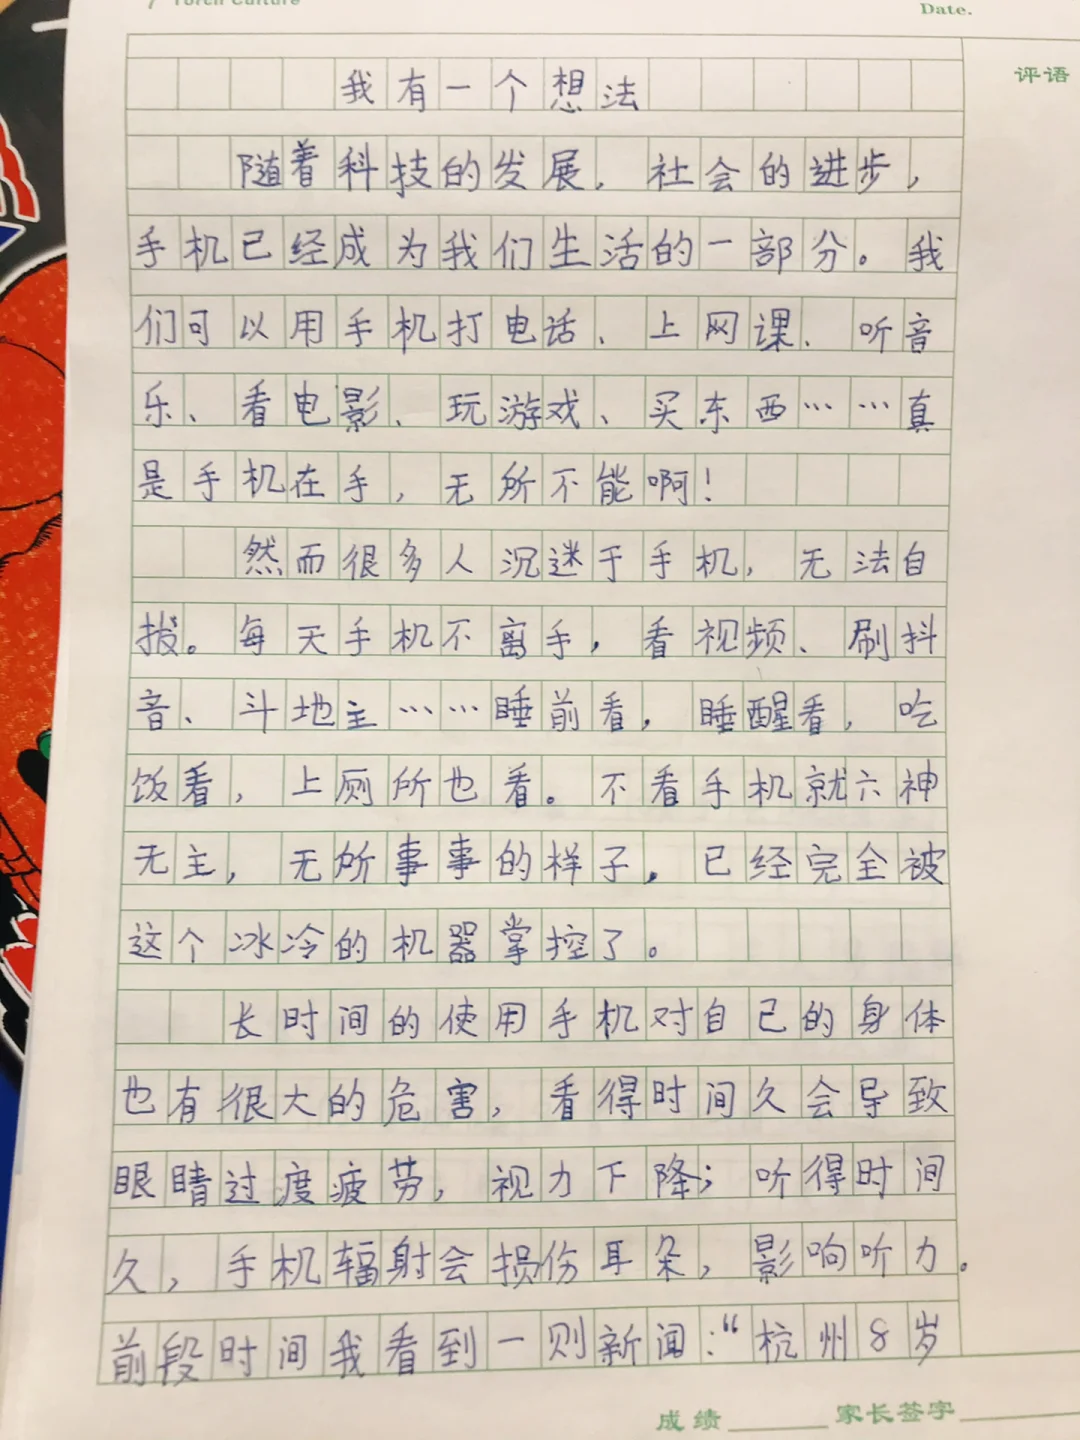 Torch Culture
Date.
评语
我有一个想法
随着科技的发展，社会的进步，
手机已经成为我们生活的一部分。我
们可以用手机打电话、上网课、听音
乐、看电影、玩游戏、买东西……真
是手机在手，无所不能啊！
然而很多人沉迷于手机，无法自
拔。每天手机不离手，看视频、刷抖
音、斗地主……睡前看，睡醒看，吃
饭看，上厕所也看。不看手机就六神
无主，无所事事的样子，已经完全被
这个冰冷的机器掌控了。
长时间的使用手机对自己的身体
也有很大的危害，看得时间久会导致
眼睛过度疲劳，视力下降；听得时间
久，手机辐射会损伤耳朵，影响听力。
前段时间我看到一则新闻：“杭州8岁
成绩 家长签字